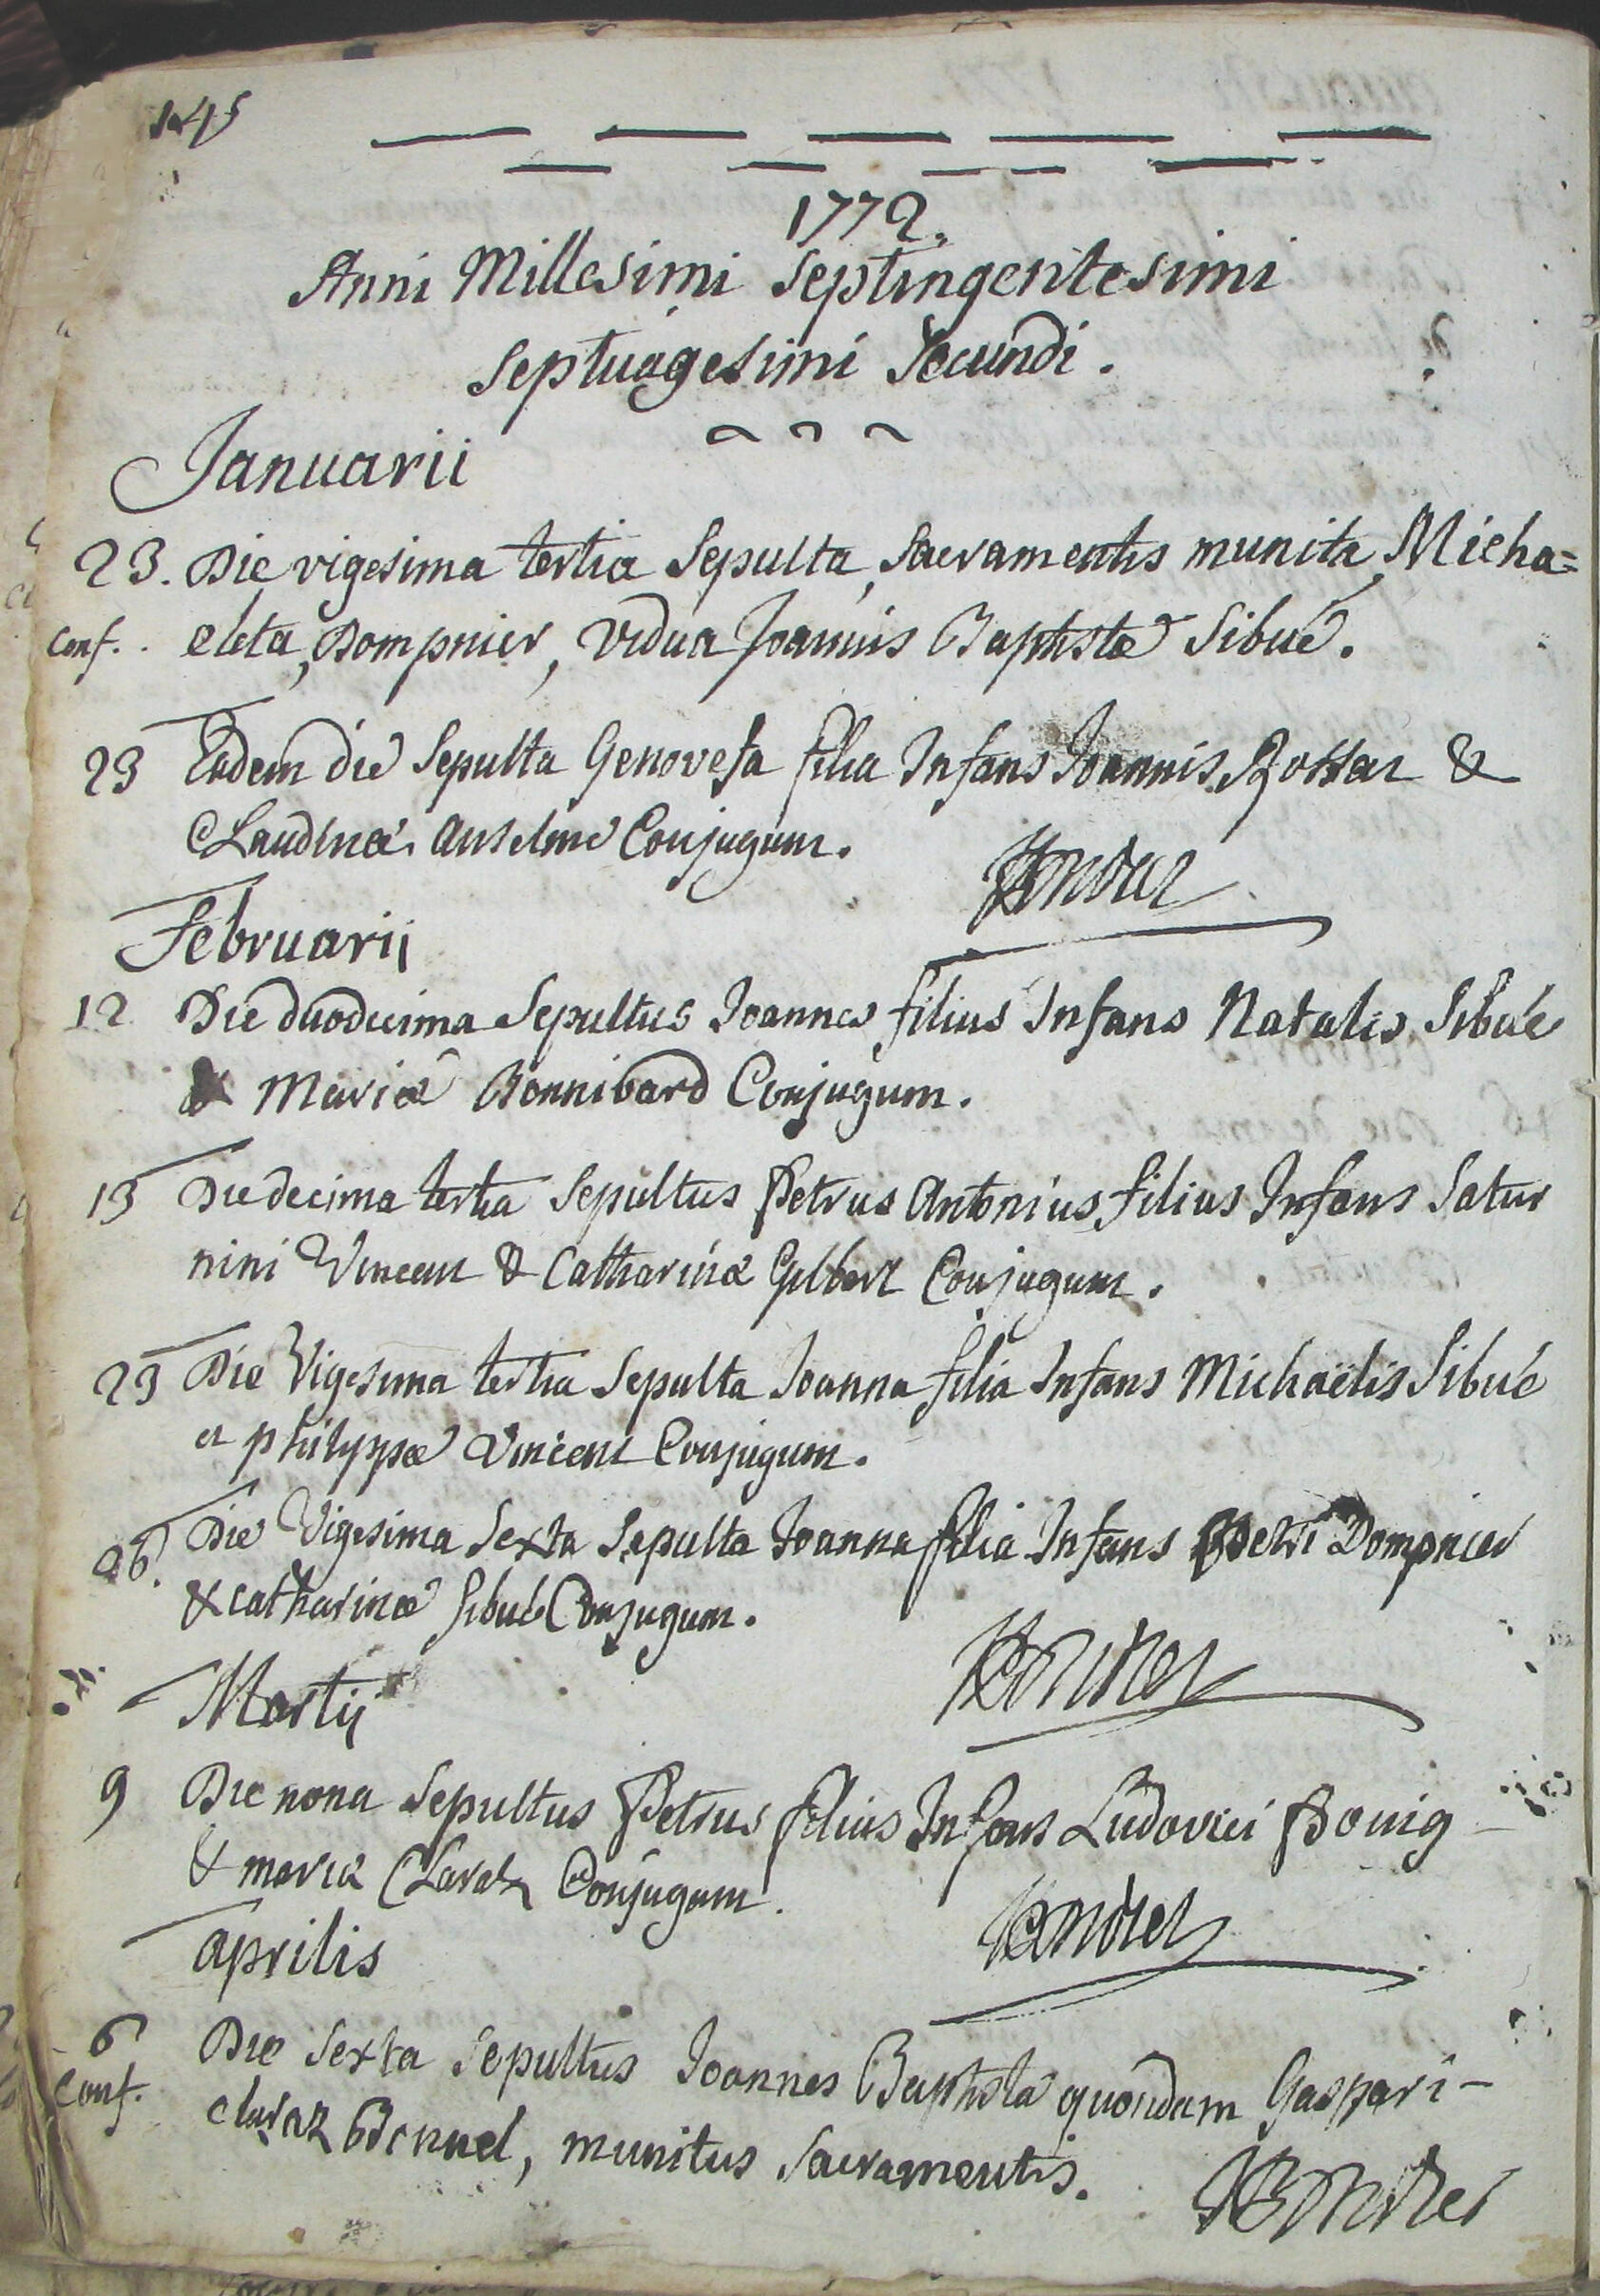 145
1772.
Anni Millesimi Septingentesimi
Septuagesimi Secundi.
Januarii
23. Die vigesima tertia Sepulta, Sacramentis munita, Micha=
conf. eleta, Dompnier, vidua Joannis Baptistæ Sibué.
23 Eadem die Sepulta Genovefa filia Infans Joannis &
Claudinæ Anselme Conjugum.
Februarij
12 Die duodecima Sepultus Joannes filius Infans Natalis Sibué
& Mariæ Bonnivard Conjugum.
13 Die decima tertia Sepultus Petrus Antonius filius Infans Satur
nini Vincent & Catharinæ Gilbert Conjugum.
23 Die Vigesima tertia Sepulta Joanna filia Infans Michaëlis Sibué
et philippæ Vincent Conjugum.
26. Die Vigesima Sexta Sepulta Joanna filia Infans Petri Dompnier
& catharinæ Sibué Conjugum.
Martij
9 Die nona Sepultus Petrus filius Infans Ludovici
& mariæ Claraz Conjugum.
aprilis
6 Die Sexta Sepultus Joannes Baptista quondam Gaspari-
conf. claraz munitus Sacramentis.